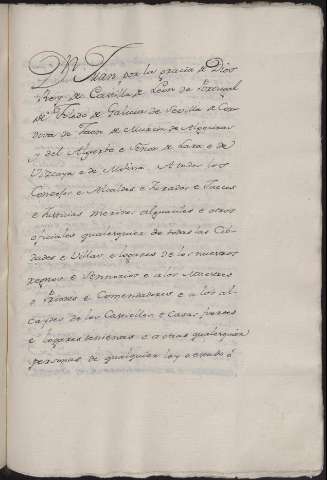 Dn. Juan por la gracia de Dios
Rey de Castilla de Leon de Portugal
de Toledo de Galicia de Sevilla de Cor
dova de Jaen de Murcia de Algecira
y del Algarve e Señor de Lara e de
Vizcaya e de Molina. A todos los
Concejos e Alcaldes e Jurados e Jueces
e Justicias merinos alguaciles e otros
oficiales qualesquier de todas las Cib
dades e Villas e logares de los nuestros
regnos e Sennorios e a los Maestres
e Priores e Comendadores e a los al
caydes de los Castiellos e Casas fuertes
e logares e a otras qualesquier
personas de qualquier ley o estado ó